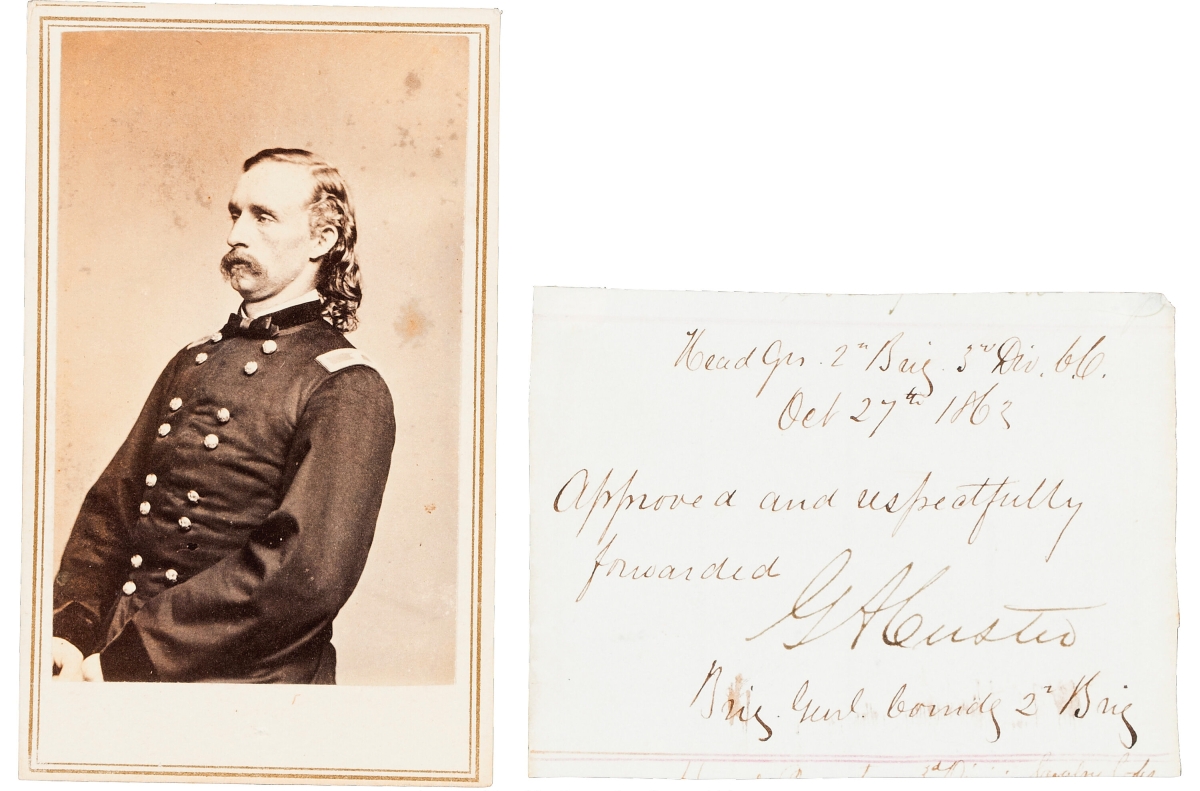 Head Qrs. 2ⁿ Brig. 3ʳᵈ Div. C.C.
Oct 27ᵗʰ 1863
Approved and respectfully
forwarded
GACuster
Brig. Genl. Comdg 2ᵈ Brig